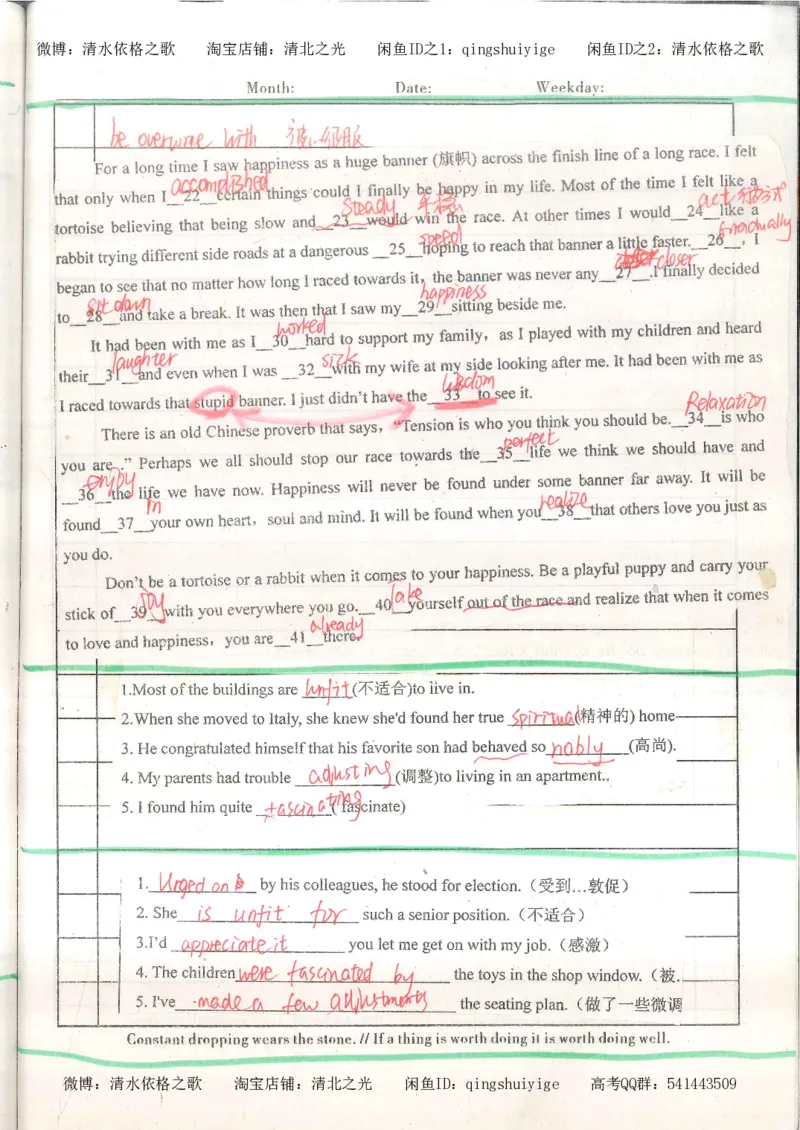 微博：清水依格之歌 淘宝店铺：清北之光 闲鱼ID之1：qingshuiyige 闲鱼ID之2：清水依格之歌
Month: Date: Weekday:
be overwme with 被…征服
For a long time I saw happiness as a huge banner (旗帜) across the finish line of a long race. I felt
accomplished
that only when I__22__certain things could I finally be happy in my life. Most of the time I felt like a
Steady 平稳 act
tortoise believing that being slow and__23__would win the race. At other times I would__24__like a
speed gradually
rabbit trying different side roads at a dangerous __25__hoping to reach that banner a little faster.__26__, I
closer
began to see that no matter how long I raced towards it, the banner was never any__27__.I finally decided
sit down happiness
to__28__and take a break. It was then that I saw my__29__sitting beside me.
worked
It had been with me as I__30__hard to support my family, as I played with my children and heard
laughter sick
their__31__and even when I was __32__with my wife at my side looking after me. It had been with me as
wisdom
I raced towards that stupid banner. I just didn't have the __33__to see it.
Relaxation
There is an old Chinese proverb that says, "Tension is who you think you should be.__34__is who
perfect
you are ." Perhaps we all should stop our race towards the__35__life we think we should have and
enjoy
__36__the life we have now. Happiness will never be found under some banner far away. It will be
in realize
found__37__your own heart, soul and mind. It will be found when you__38__that others love you just as
you do.
Don't be a tortoise or a rabbit when it comes to your happiness. Be a playful puppy and carry your
joy take
stick of__39__with you everywhere you go.__40__yourself out of the race and realize that when it comes
already
to love and happiness, you are__41__there.
1.Most of the buildings are unfit(不适合)to live in.
2.When she moved to Italy, she knew she'd found her true spiritual(精神的) home
3. He congratulated himself that his favorite son had behaved so nobly(高尚).
4. My parents had trouble adjusting(调整)to living in an apartment..
5. I found him quite fascinating( fascinate)
1. Urged on by his colleagues, he stood for election.（受到…敦促）
2. She is unfit for such a senior position.（不适合）
3.I'd appreciate it you let me get on with my job.（感激）
4. The children were fascinated by the toys in the shop window.（被.
5. I've made a few adjustments the seating plan.（做了一些微调
Constant dropping wears the stone. // If a thing is worth doing it is worth doing well.
微博：清水依格之歌 淘宝店铺：清北之光 闲鱼ID：qingshuiyige 高考QQ群：541443509